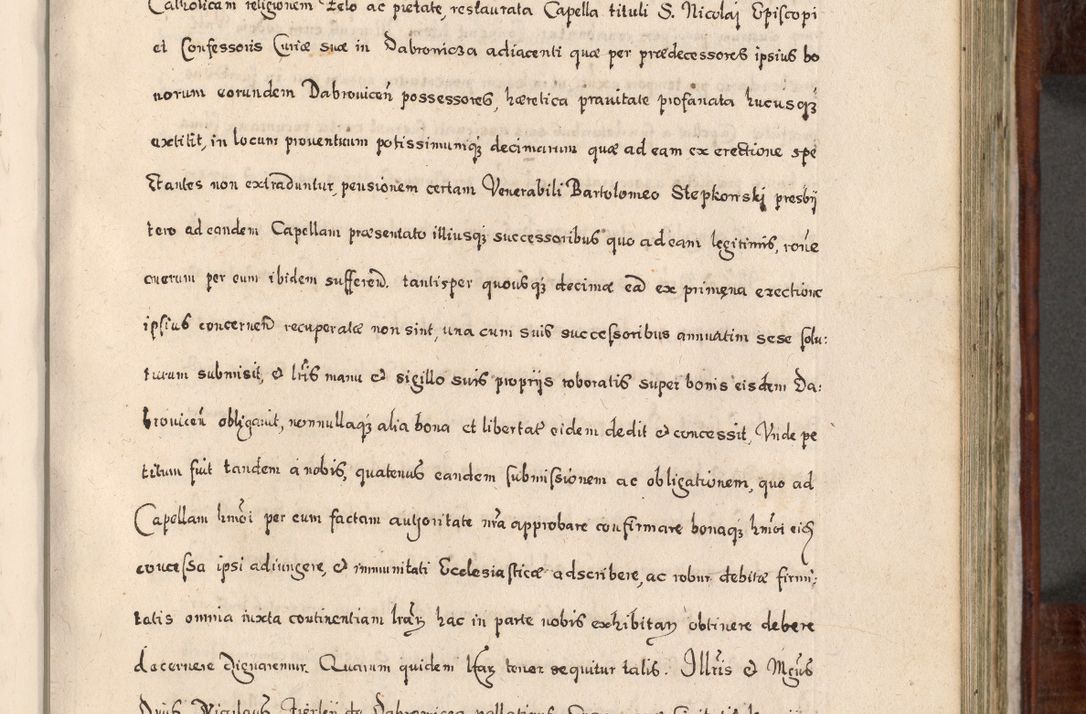 Catholicam religionem zelo ac pietate, restaurata Capella tituli S. Nicolaj Episcopi
et Confessoris Curiæ suæ in Dabrouicza adiacenti quæ per prædecessores ipsius bo
norum eorundem Dabrouiceñ possessores, hæretica prauitate profanata hucusq꙳
extitit, in locum prouentuum potissimumq꙳ decimarum quæ ad eam ex erectione spe
ctantes non extraduntur, pensionem certam Venerabili Bartolomeo Stepkowskj presbij
tero ad eandem Capellam præsentato illiusq꙳ successoribus quo ad eam legitimis, rone
onerum per eum ibidem sufferend. tantisper quousq꙳ decimæ ead ex primæua erectione
ipsius concernend recuperatæ non sint, una cum suis successoribus annuatim sese solu:
turum submisit, & lris manu & sigillo suis proprijs roboratis super bonis eisdem Da:
brouiceñ obligauit, nonnullaq꙳ alia bona et libertat eidem dedit & concessit, Vnde pe
titum fuit tandem á nobis, quatenus eandem submissionem ac obligationem, quo ad
Capellam hmoi per eum factam authoritate nra approbare confirmare bonaq꙳ hmoi eid
concessa ipsi adiungere, & immunitati Ecclesiasticæ adscribere, ac robur debitæ firmi:
tatis omnia iuxta continentiam lrar hac in parte nobis exhibitar obtinere debere
decernere dignaremur. Quarum quidem lrar tenor sequitur talis. Illris & Mgcus
Dnus Nicolaus Firley de Dabrouicza